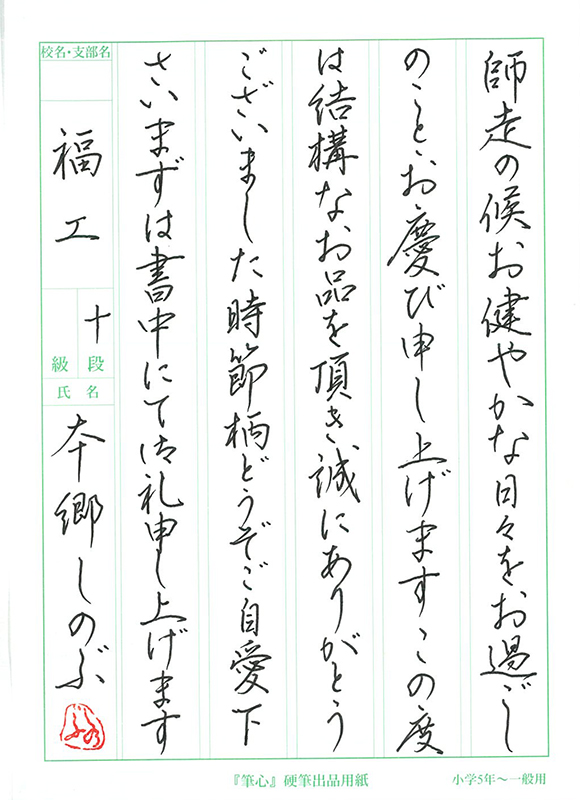 師走の候お健やかな日々をお過ごし
のことゝお慶び申し上げますこの度
は結構なお品を頂き誠にありがとう
ございました時節柄どうぞご自愛下
さいまずは書中にて御礼申し上げます
校名・支部名
福工
十
段
級
氏名
本郷しのぶ
『筆心』硬筆出品用紙
小学5年〜一般用